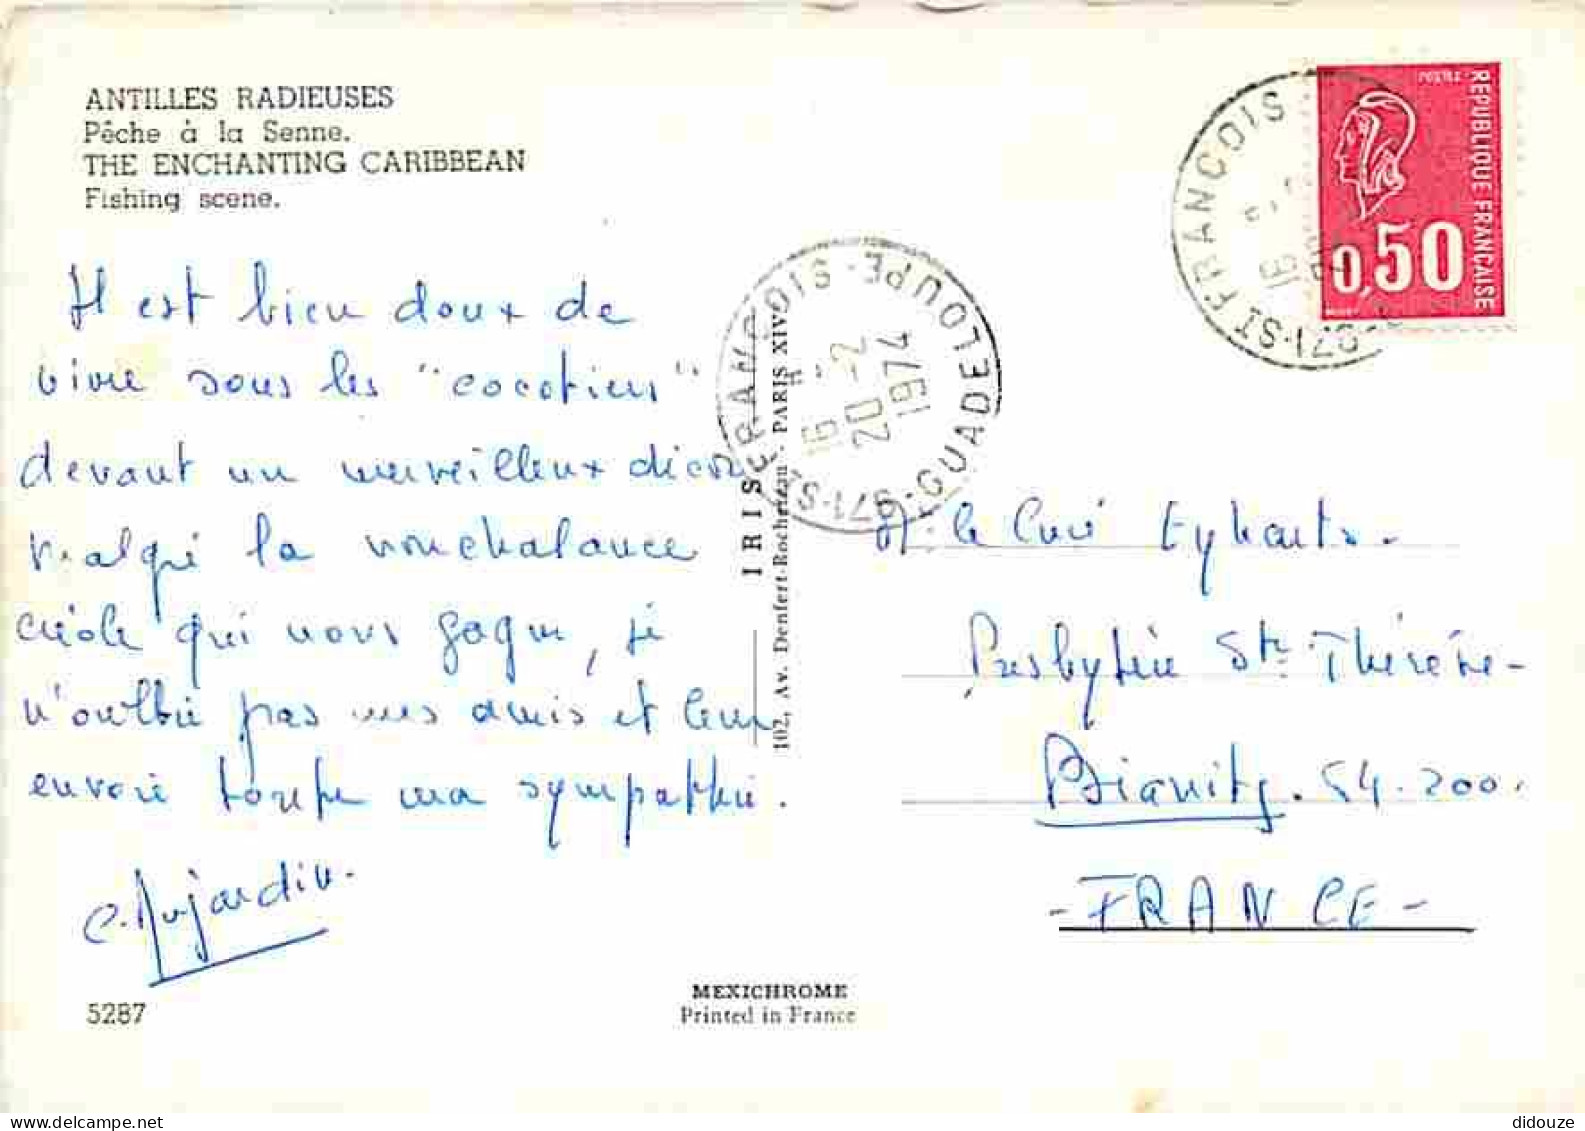 ANTILLES RADIEUSES
Pêche à la Senne.
THE ENCHANTING CARIBBEAN
Fishing scene.
Il est bien doux de
vivre sous les "cocotiers"
devant un merveilleux décor
malgré la nonchalance
créole qui nous gagne, je
n'oublie pas mes amis et leur
envoie toute ma sympathie.
C. Dujardin.
5287
MEXICHROME
Printed in France
IRIS
102, Av. Denfert-Rochereau - PARIS XIVe
971-ST FRANCOIS - GUADELOUPE
16 H
20-2
1974
971-ST FRANCOIS
16
REPUBLIQUE FRANCAISE
0,50
M. le Curé Eyharts.
Presbytère Ste Thérèse-
Biarritz. 64.200.
- FRANCE -
didouze